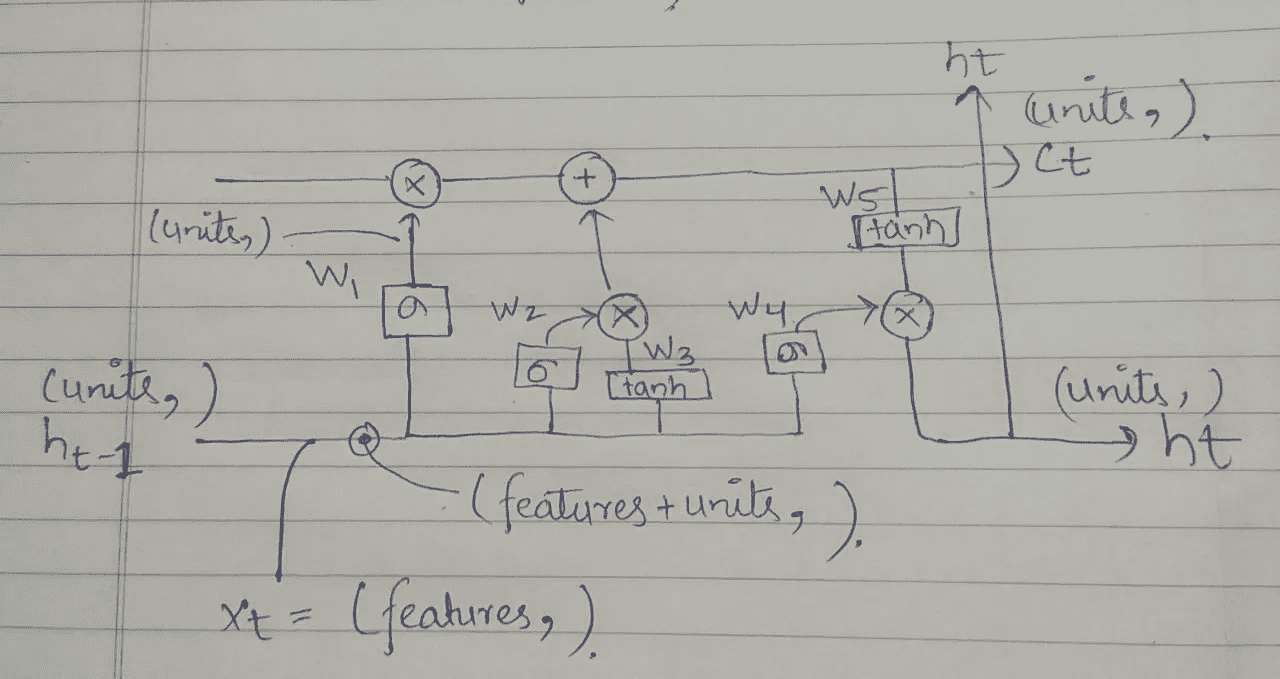 ht
(units,).
Ct
x
+
W5
tanh
(units,)
W1
σ
W2
x
W4
x
σ
W3
tanh
σ
(units,)
ht-1
(units,)
ht
(features + units, ).
xt = (features, ).